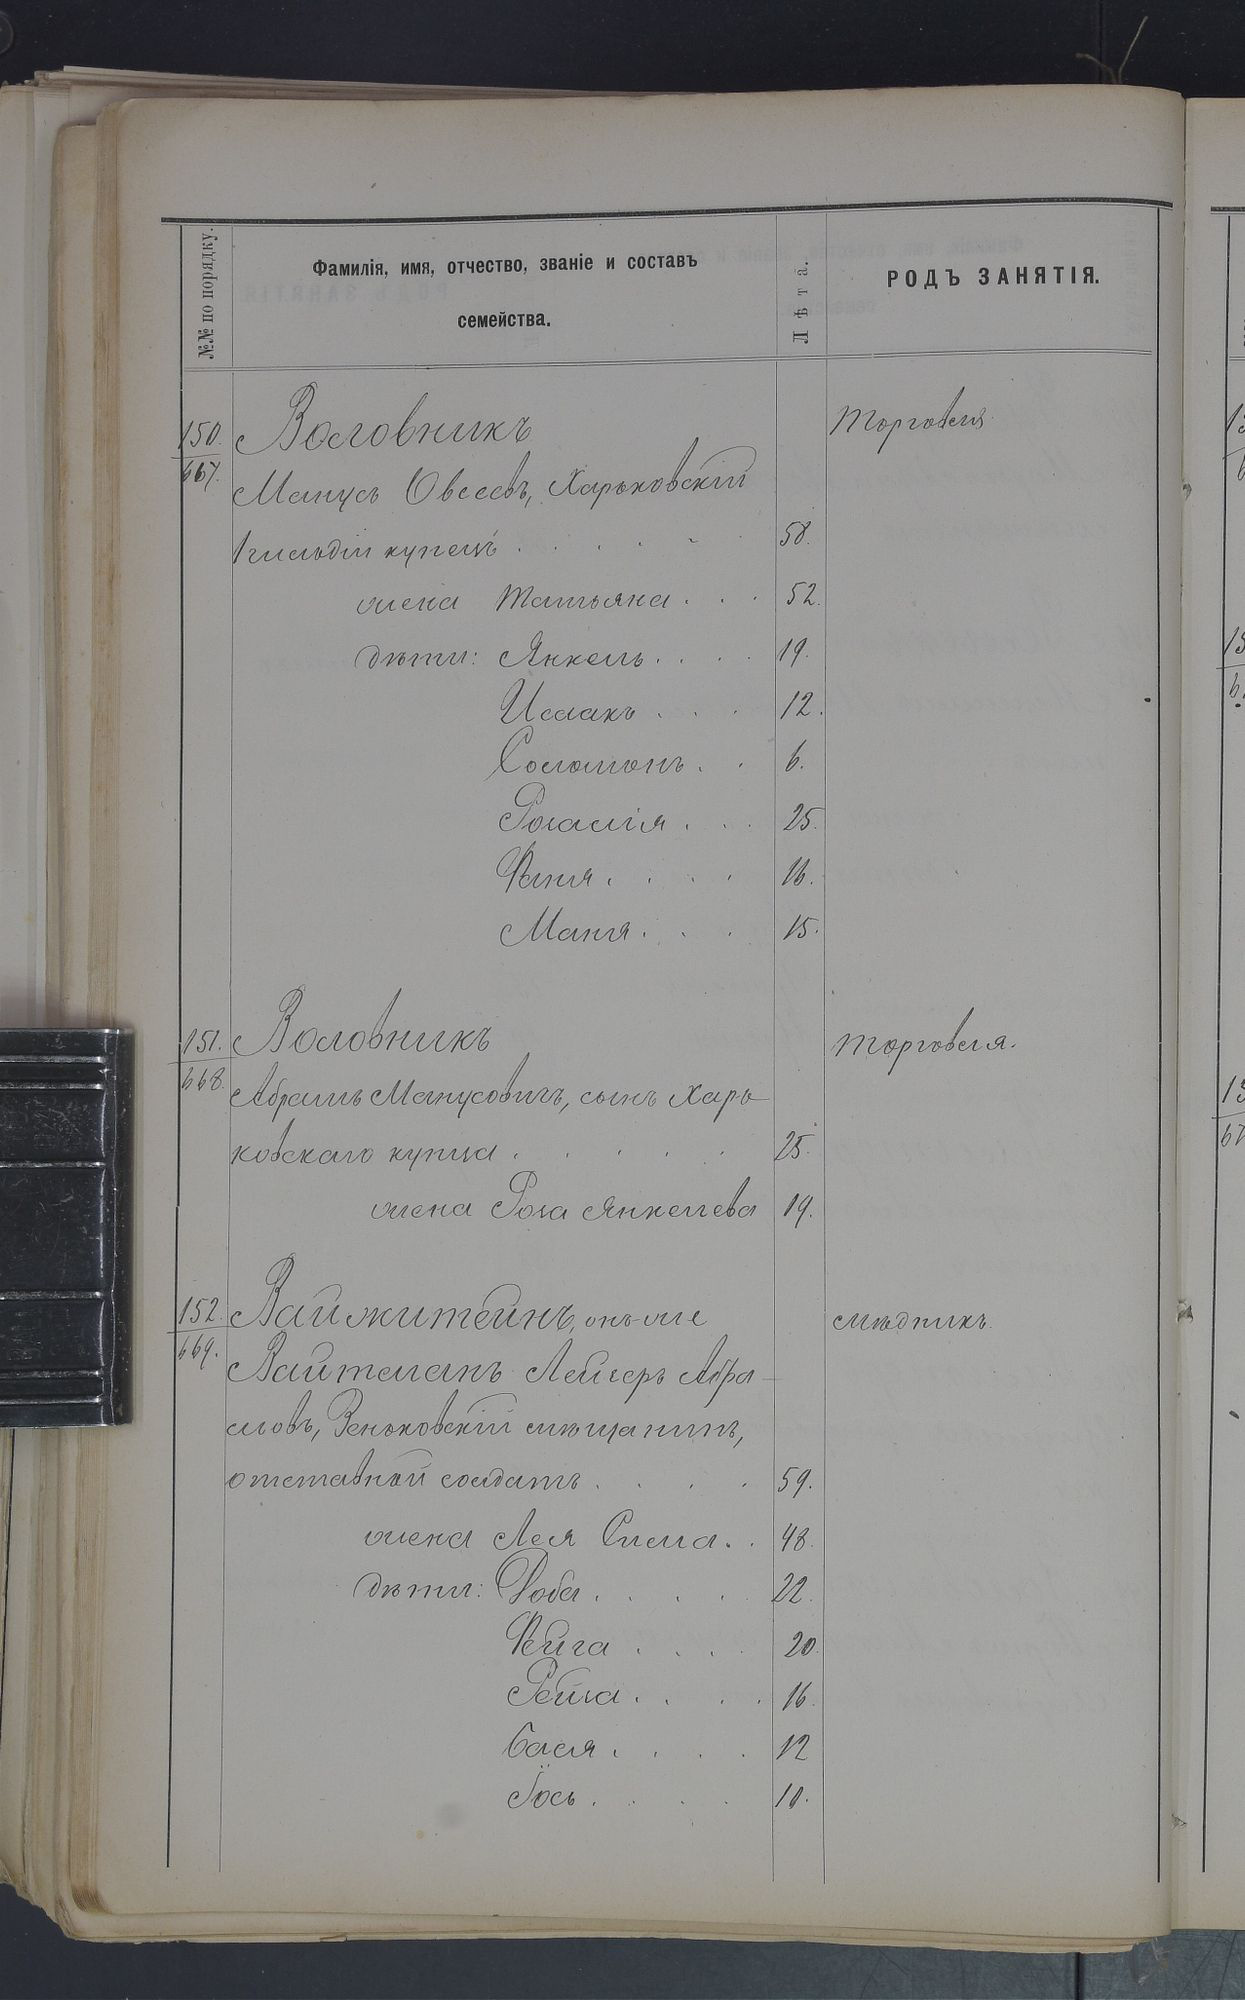 №№ по порядку.
Фамилія, имя, отчество, званіе и составъ
семейства.
Лѣта.
РОДЪ ЗАНЯТІЯ.
150. Воловникъ Торговля
667. Манусъ Овсеевъ, Харьковскій
1 гильдіи купецъ . . . . . 58.
жена Татьяна . . . 52.
дѣти: Янкель . . . . 19.
Исаакъ . . . 12.
Соломонъ . . 6.
Розалія . . . 25.
Фаня . . . . 16.
Маня . . . 15.
151. Воловникъ Торговля.
668. Абрамъ Манусовичъ, сынъ Харь-
ковскаго купца . . . . . 25.
жена Роза Янкелева 19.
152. Вайжитейнъ, онъ-же Мѣдникъ.
669. Вайтманъ Лейзеръ Абра-
мовъ, Зеньковскій мѣщанинъ,
отставной солдатъ . . . . 59.
жена Лея Сима . . 48.
дѣти: Доба . . . . 22.
Фейга . . . . 20.
Рейза . . . . 16.
Бася . . . . 12
Іось . . . . 10.